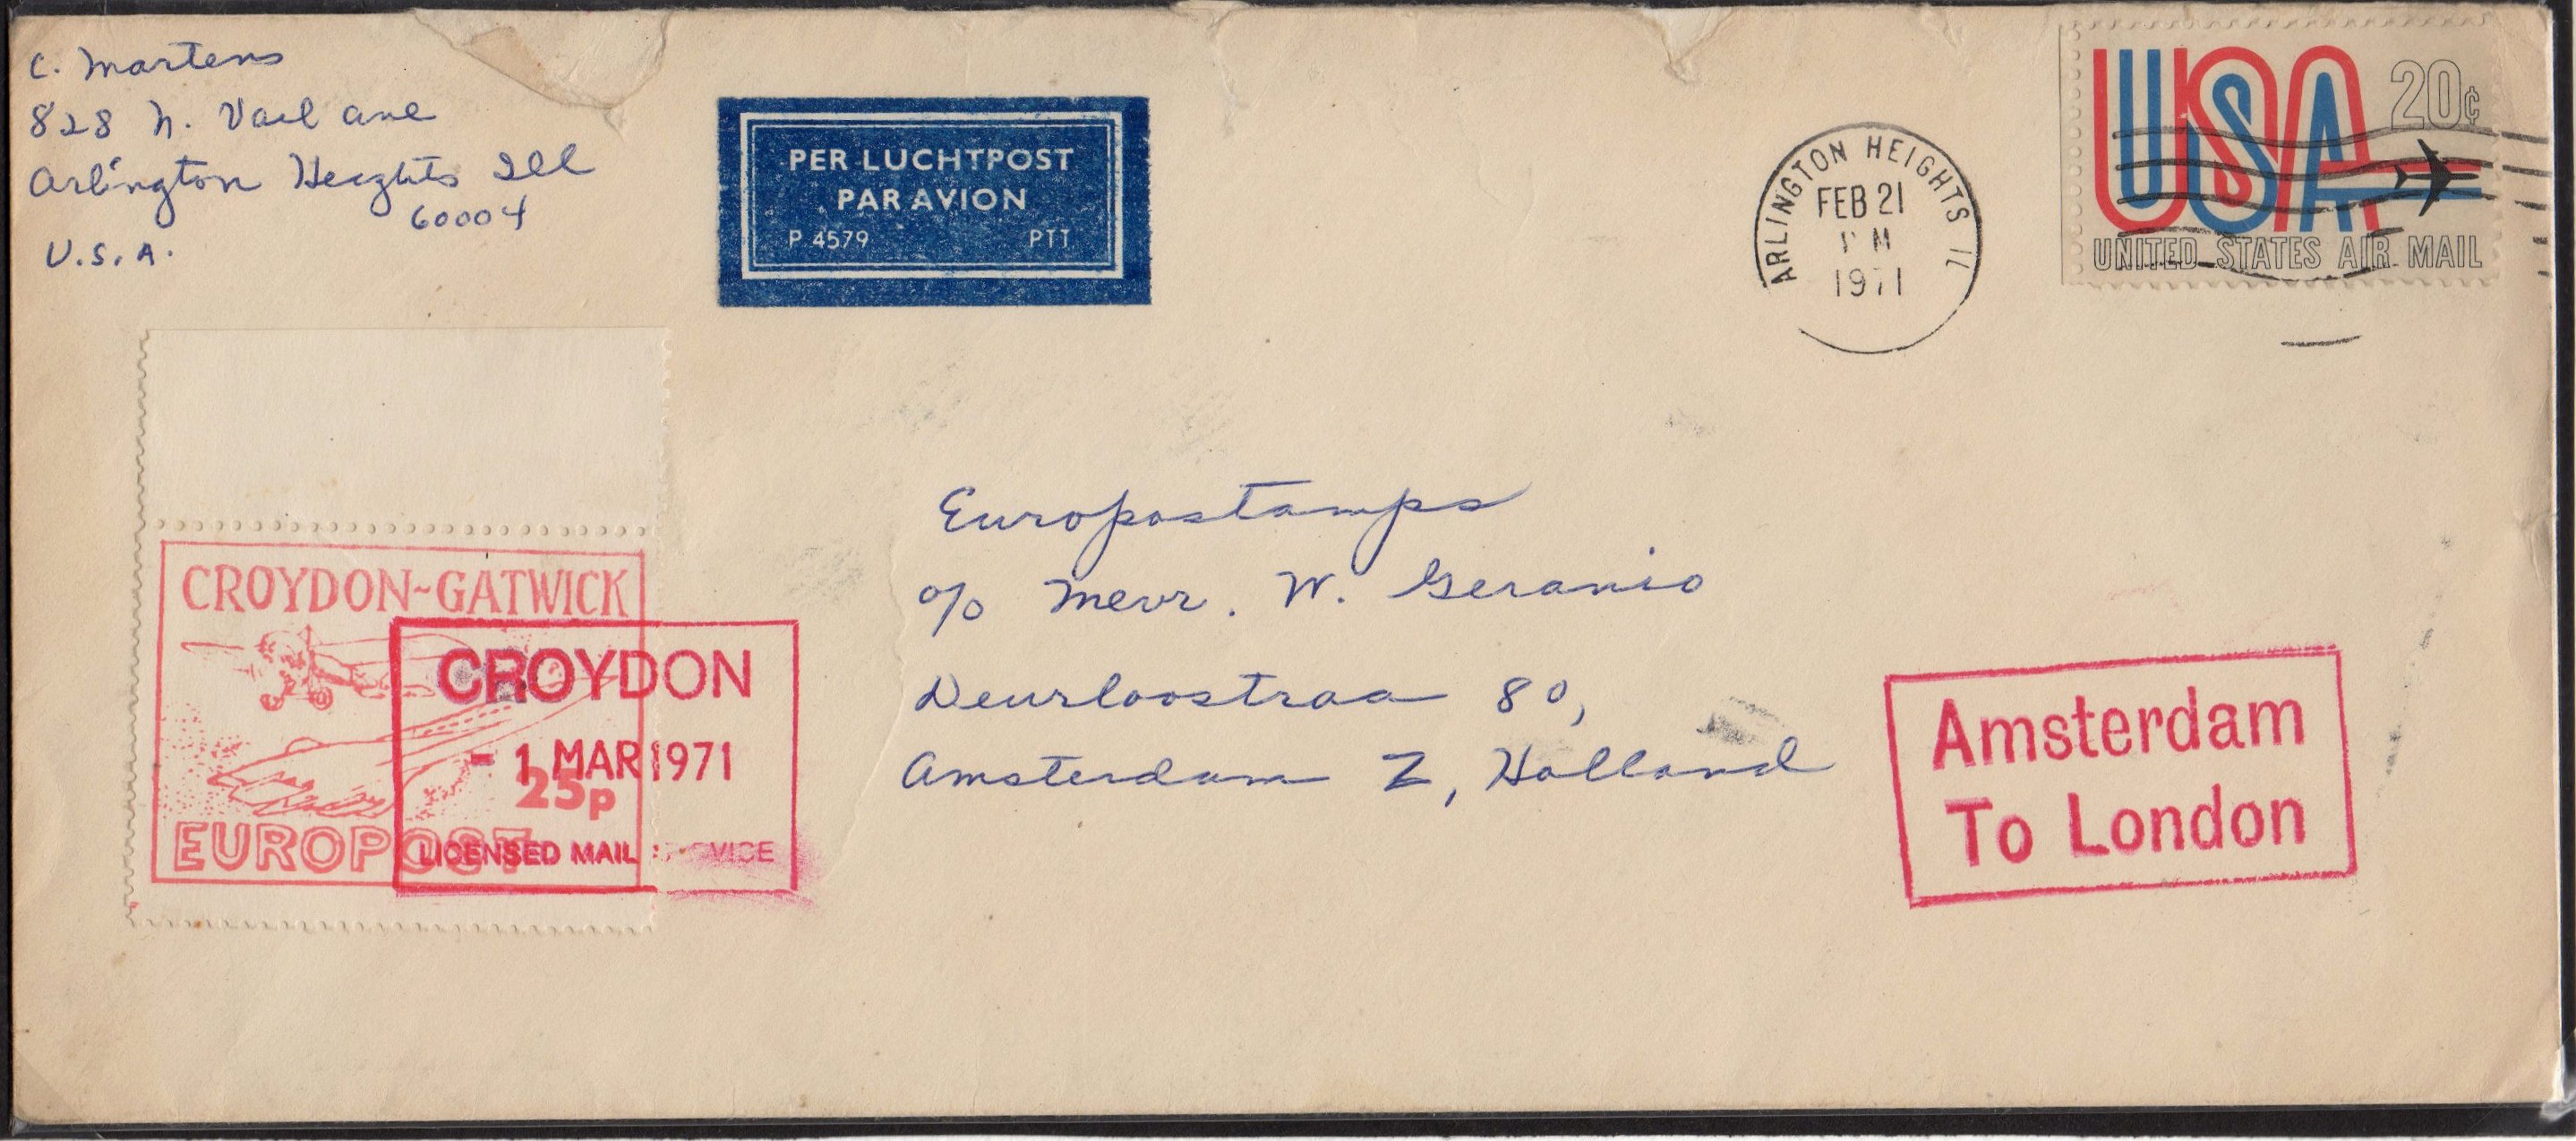 C. Martens
828 N. Vail ave
Arlington Heights Ill
60004
U.S.A.
PER LUCHTPOST
PAR AVION
P 4579 PTT
ARLINGTON HEIGHTS IL
FEB 21
PM
1971
USA 20¢
UNITED STATES AIR MAIL
Europostamps
c/o Mevr. W. Geranio
Deurloostraa 80,
Amsterdam Z, Holland
CROYDON~GATWICK
25p
EUROPOST
CROYDON
- 1 MAR 1971
LICENSED MAIL
Amsterdam
To London